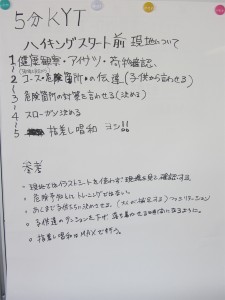 5分KYT
ハイキングスタート前 現地について
1 健康観察・アイサツ・荷物確認、
2 コース・危険箇所の伝達(子供から言わせる)
3 危険箇所の対策を言わせる(決める)
4 スローガン決める
5 指差し唱和 ヨシ!!
参考
・現地ではイラストシートを使わず現場を見て確認する
・危険予知トレーニングではない。
・あくまで子供たちに決めさせる。(大人が補足する)ファシリテーション
・子供達のテンションを下げ 落ち着かせる時間になるように。
・指差し唱和はMAXで行う。